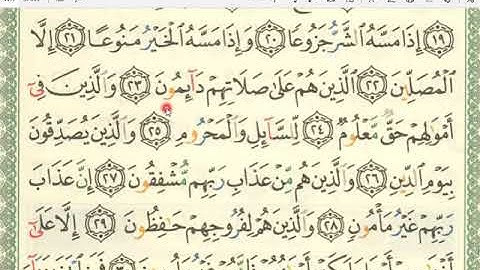 ﴿١٩﴾ إِذَا مَسَّهُ الشَّرُّ جَزُوعًا ﴿٢٠﴾ وَإِذَا مَسَّهُ الْخَيْرُ مَنُوعًا ﴿٢١﴾ إِلَّا
الْمُصَلِّينَ ﴿٢٢﴾ الَّذِينَ هُمْ عَلَىٰ صَلَاتِهِمْ دَآئِمُونَ ﴿٢٣﴾ وَالَّذِينَ فِىٓ
أَمْوَٰلِهِمْ حَقٌّ مَّعْلُومٌ ﴿٢٤﴾ لِّلسَّآئِلِ وَالْمَحْرُومِ ﴿٢٥﴾ وَالَّذِينَ يُصَدِّقُونَ
بِيَوْمِ الدِّينِ ﴿٢٦﴾ وَالَّذِينَ هُم مِّنْ عَذَابِ رَبِّهِم مُّشْفِقُونَ ﴿٢٧﴾ إِنَّ عَذَابَ
رَبِّهِمْ غَيْرُ مَأْمُونٍ ﴿٢٨﴾ وَالَّذِينَ هُمْ لِفُرُوجِهِمْ حَٰفِظُونَ ﴿٢٩﴾ إِلَّا عَلَىٰٓ